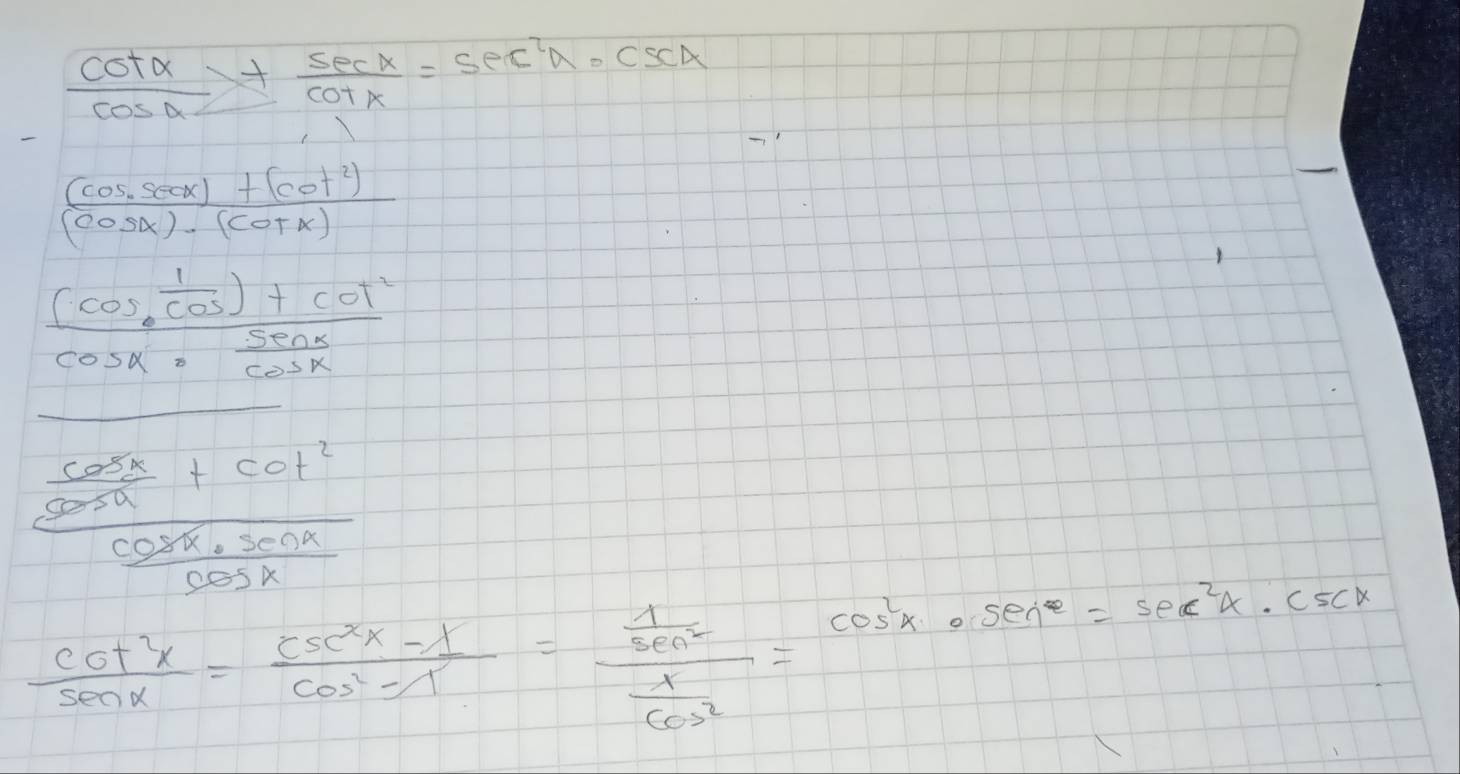 cotα/cosα + secα/cotα = sec²α · cscα
(cos·secα) + (cot²) / (cosα) · (cotα)
(cos · 1/cos) + cot² / cosα · senα/cosα
cosα/cosα + cot² / cosα · senα/cosα
cot²x/senα = csc²x - 1/cos² - 1 = 1/sen² / 1/cos² = cos²x · sen = sec²x · cscα